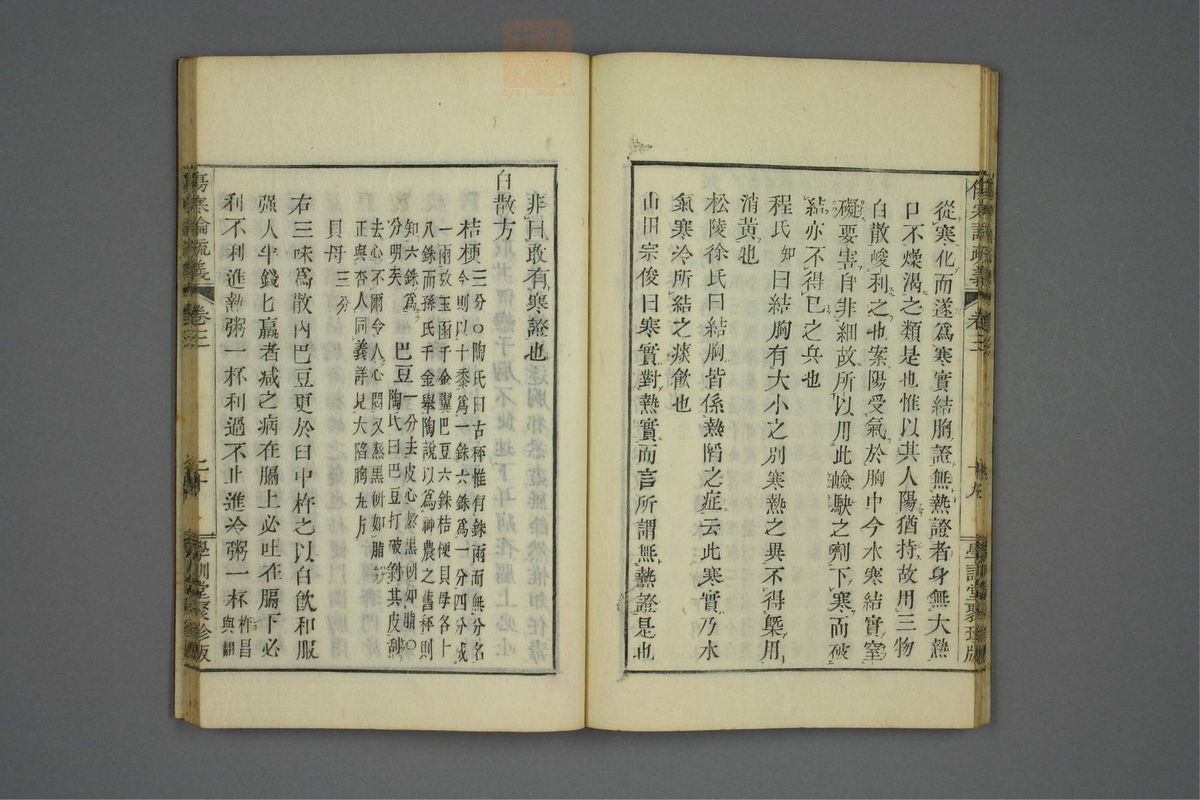 從寒化而遂爲寒實結胸證無熱證者身無大熱
口不燥渴之類是也惟以其人陽猶持故用三物
白散峻利之也案陽受氣於胸中今水寒結實窒
礙要害自非細故所以用此嶮駃之劑下寒而破
結亦不得已之兵也
程氏知曰結胸有大小之別寒熱之異不得槩用
消黃也
松陵徐氏曰結胸皆係熱陷之症云此寒實乃水
氣寒冷所結之痰飲也
山田宗俊曰寒實對熱實而言所謂無熱證是也
傷寒論疏義 卷三 學訓堂聚珍版
非曰敢有寒證也
白散方
桔梗三分○陶氏曰古秤惟有銖兩而無分名
今則以十黍爲一銖六銖爲一分四分成
一兩攷玉函千金翼巴豆六銖桔梗貝母各十
八銖而孫氏千金舉陶說以爲神農之舊秤則
知六銖爲
分明矣 巴豆一分去皮心熬黑研如脂○
陶氏曰巴豆打破剝其皮刮
去心不爾令人心悶又熬黑研如脂
正與杏人同義詳見大陷胸丸方
貝母三分
右三味爲散內巴豆更於臼中杵之以白飲和服
强人半錢匕羸者减之病在膈上必吐在膈下必
利不利進熱粥一杯利過不止進冷粥一杯
傷寒論疏義 卷三 學訓堂聚珍版